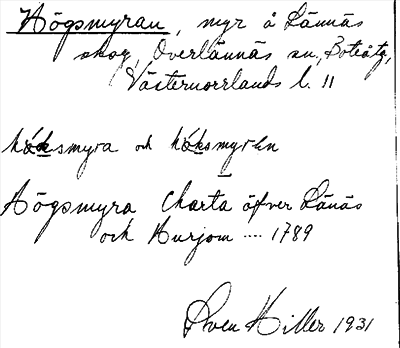 Högsmyran, myr å Lännäs
skog, Överlännäs sn, Boteåtg,
Västernorrlands l. 11
håksmyra och håksmyrən
Högsmyra Charta öfver Länäs
och Hurjom .... 1789
Sven Hiller 1931